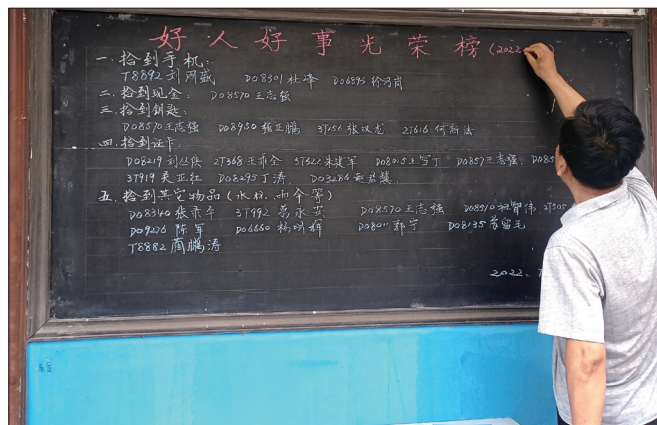 好人好事光荣榜(2022
一.拾到手机:
T8892 刘河盛 D08301 杜峰 D06895 徐乃岗
二.拾到现金: D08570 王志强
三.拾到钥匙:
D08570 王志强 D08950 张正鹏 3T156 张汉龙 2T616 何新法
四.拾到证卡:
D08219 刘丛侠 2T368 王乖全 3T622 朱建军 D08015 王写丁 D0857 王志强 D085
3T919 吴正红 D08295 丁涛 D03286 赵君慧
五.拾到其它物品(水杯,雨伞等)
D08340 张乖军 3T992 葛永安 D08570 王志强 D08510 程智伟 2T505
D09276 陈军 D06660 杨明辉 D08011 郭宁 D08135 苏留元
T8882 蔺鹏涛
2022.